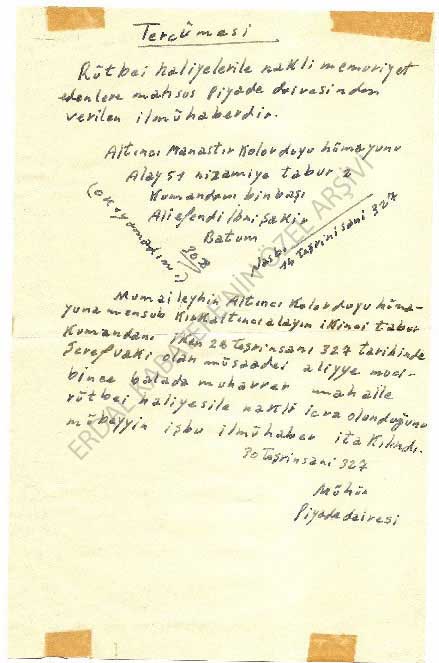 Tercümesi
Rütbei haliyelerile nakli memuriyet
edenlere mahsus piyade dairesinden
verilen ilmühaberdir.
Altıncı Manastır Kolorduyu hümayunu
Alay 51 nizamiye tabur 2
Kumandanı binbaşı
Aliefendi İbni Şakir
Batum
(okuyamadım)
Nasbı
14 Teşrinisani 327
Mumaileyhin Altıncı Kolorduyu hüma-
yuna mensub Kırkaltıncı alayın ikinci tabur
Kumandanı iken 26 teşrinsani 327 tarihinde
Şerefvaki olan müsaadei aliyye muci-
bince balada muharrer mahalle
rütbei haliyesile nakli icra olunduğunu
mübeyyin işbu ilmühaber ita kılındı.
30 teşrinsani 327
Mühür
Piyade dairesi
ERDAL KABATEPE'NİN ÖZEL ARŞİVİ